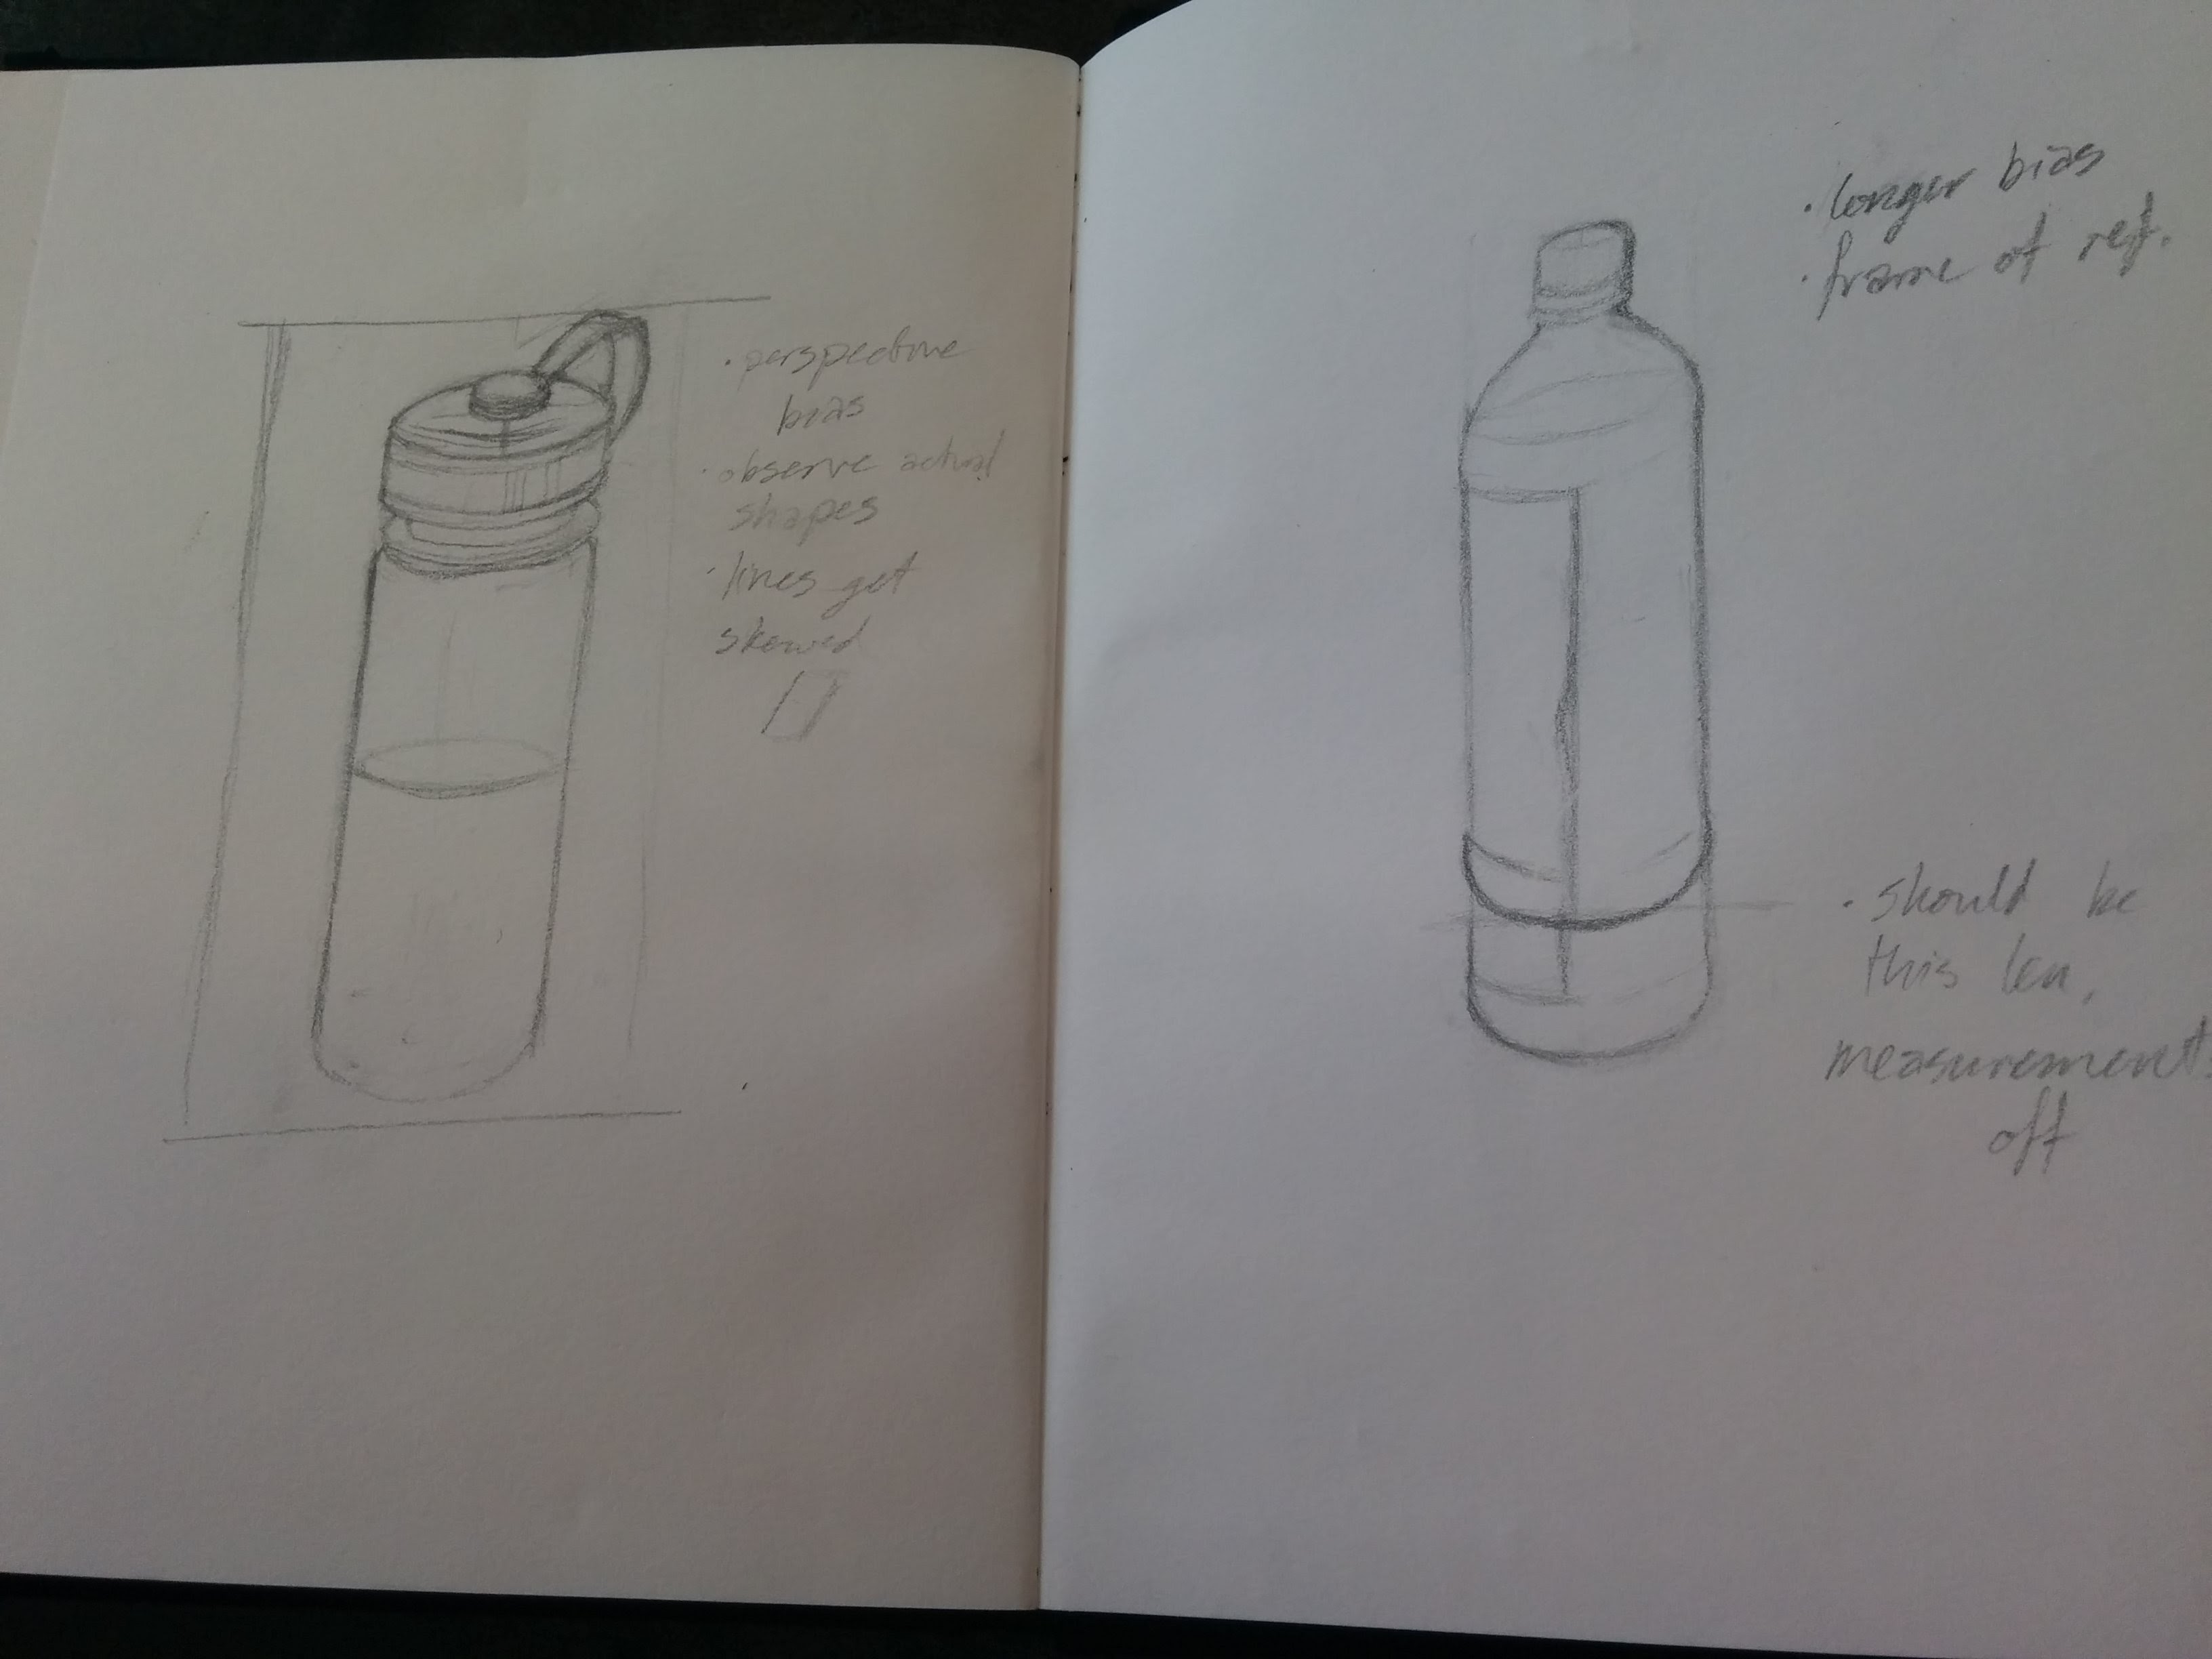 · perspective
bias
· observe actual
shapes
· lines get
skewed
· longer bias
· frame of ref.
· should be
this len,
measurements
off